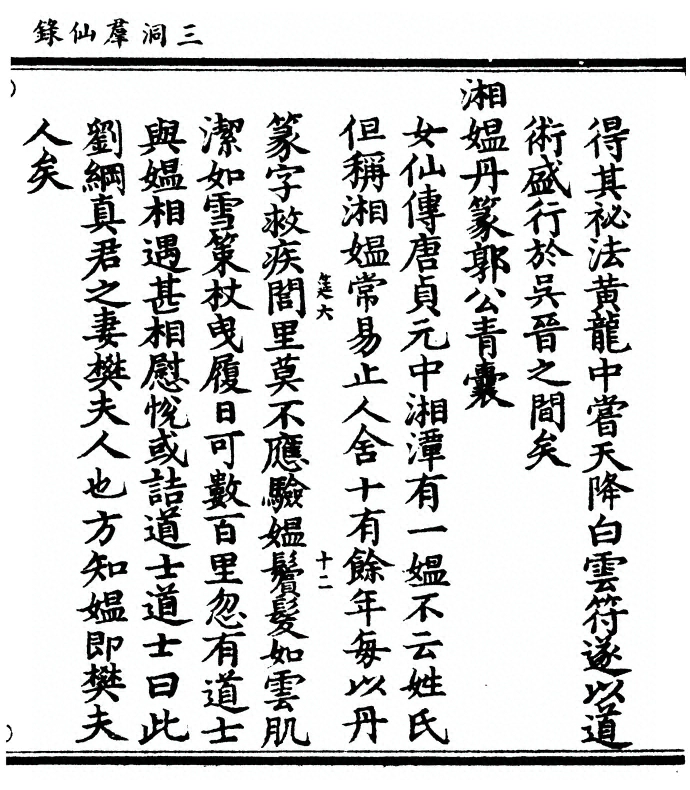 三洞羣仙錄
得其祕法黄龍中嘗天降白雲符遂以道
術盛行於吳晉之間矣
湘媼丹篆郭公青囊
女仙傳唐貞元中湘潭有一媼不云姓氏
但稱湘媼常易止人舍十有餘年每以丹
篆字救疾閭里莫不應驗媼鬢髮如雲肌
潔如雪策杖曳履日可數百里忽有道士
與媼相遇甚相慰悅或詰道士道士曰此
劉綱真君之妻樊夫人也方知媼即樊夫
人矣
筵六
十二